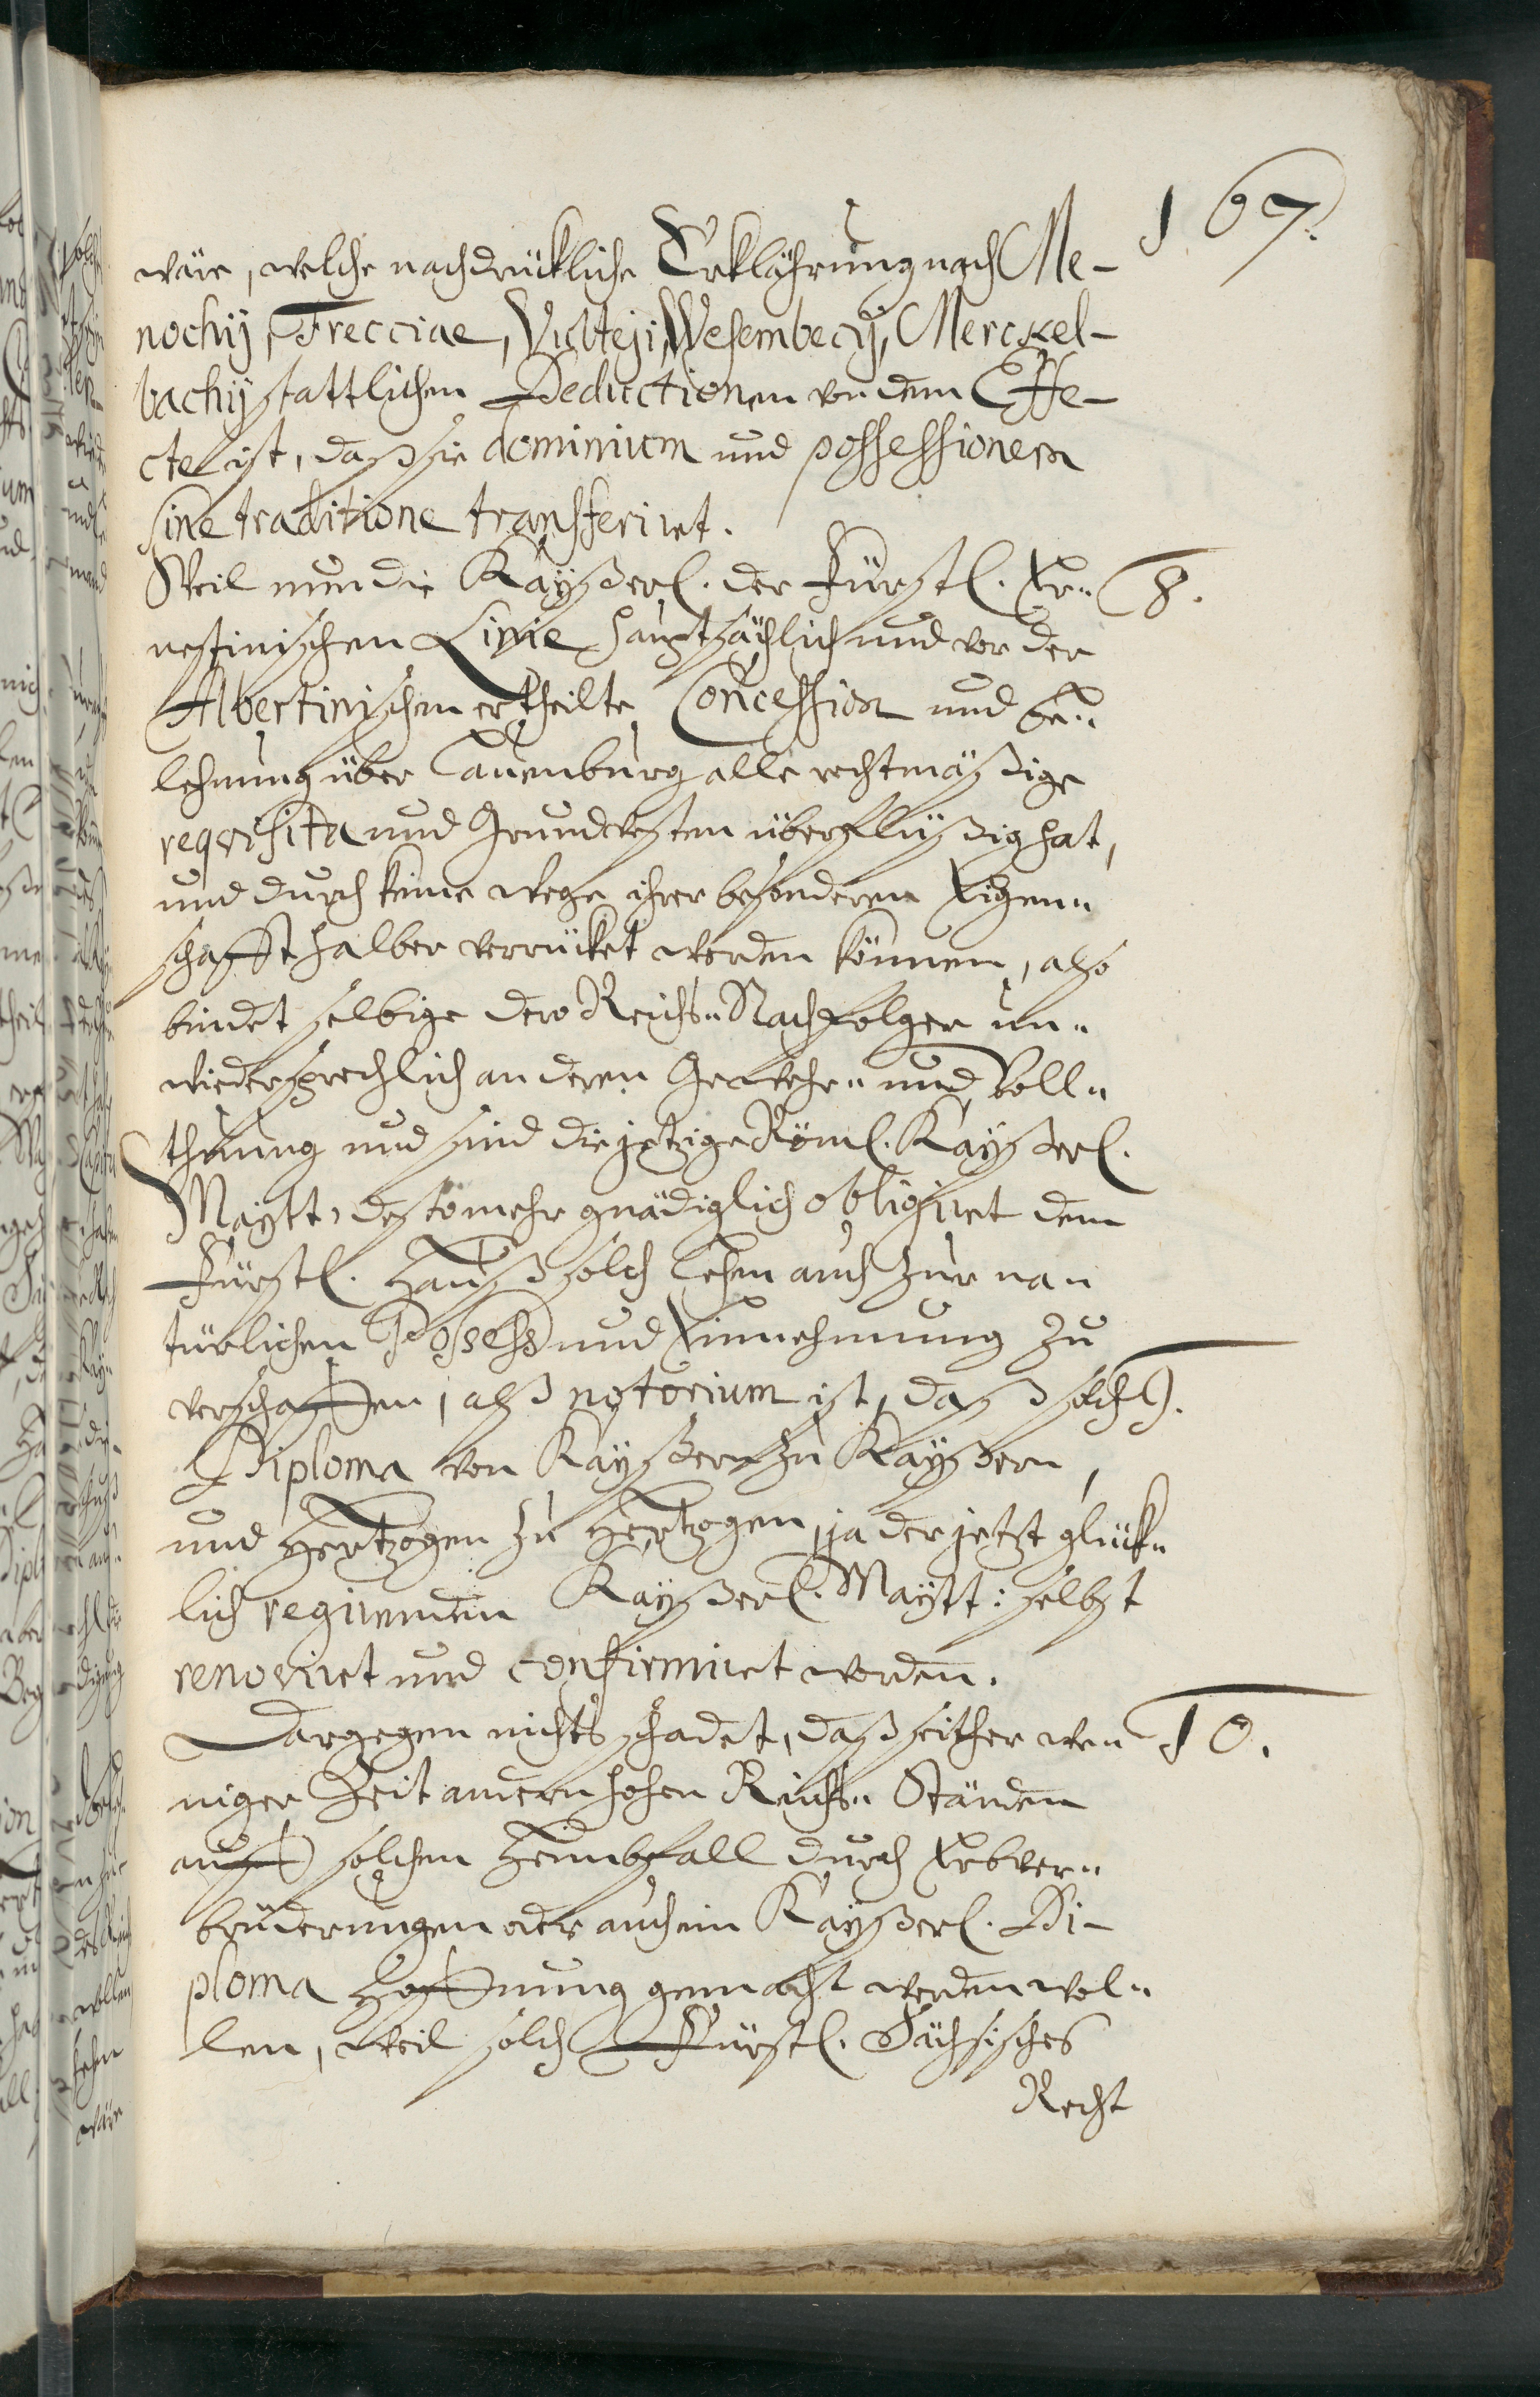 167.
wäre, welche nachdrückliche Erklährung nach Me-
nochij, Frecciae, Vulteji, Wesembecij, Merckel-
bachij stattlichen Deductionen von dem Effe-
cte ist, daß sie dominium und possessionem
sine traditione transferiret.
Weil nun die Kayßerl. der Fürstl. Er- 8.
nestinischen Linie hauptsächlich und vor der
Albertinischen ertheilte Concession und Be-
lehnung über Lauenburg alle rechtmäßige
reqvisita und Grundvesten überflüßig hat,
und durch keine wege ihrer besonderen Eigen-
schafft halber verrücket werden können, also
bindet selbige dero Reichs-Nachfolger un-
wiedersprechlich an deren Gewehr- und Voll-
thuung und sind die jetzige Röml. Kayßerl.
Maytt, desto mehr gnädiglich obligiret dem
Fürstl. Hauß solch Lehn auch zur na-
türlichen Possess und Einnehmung zu
verschaffen, alß notorium ist, daß solch 9.
Diploma von Kayßern zu Kayßern,
und Hertzogen zu Hertzogen, ja der jetzt glück-
lich regirenden Kayßerl. Maytt: selbst
renoviret und confirmiret worden.
Dargegen nichts schadet, daß seither we- 10.
niger Zeit andern hohen Reichs- Ständen
auff solchen Heimbfall durch Erbver-
brüderungen oder auch ein Kayßerl. Di-
ploma Hoffnung gemacht werden wol-
len, weil solch Fürstl. Sächsisches
Recht